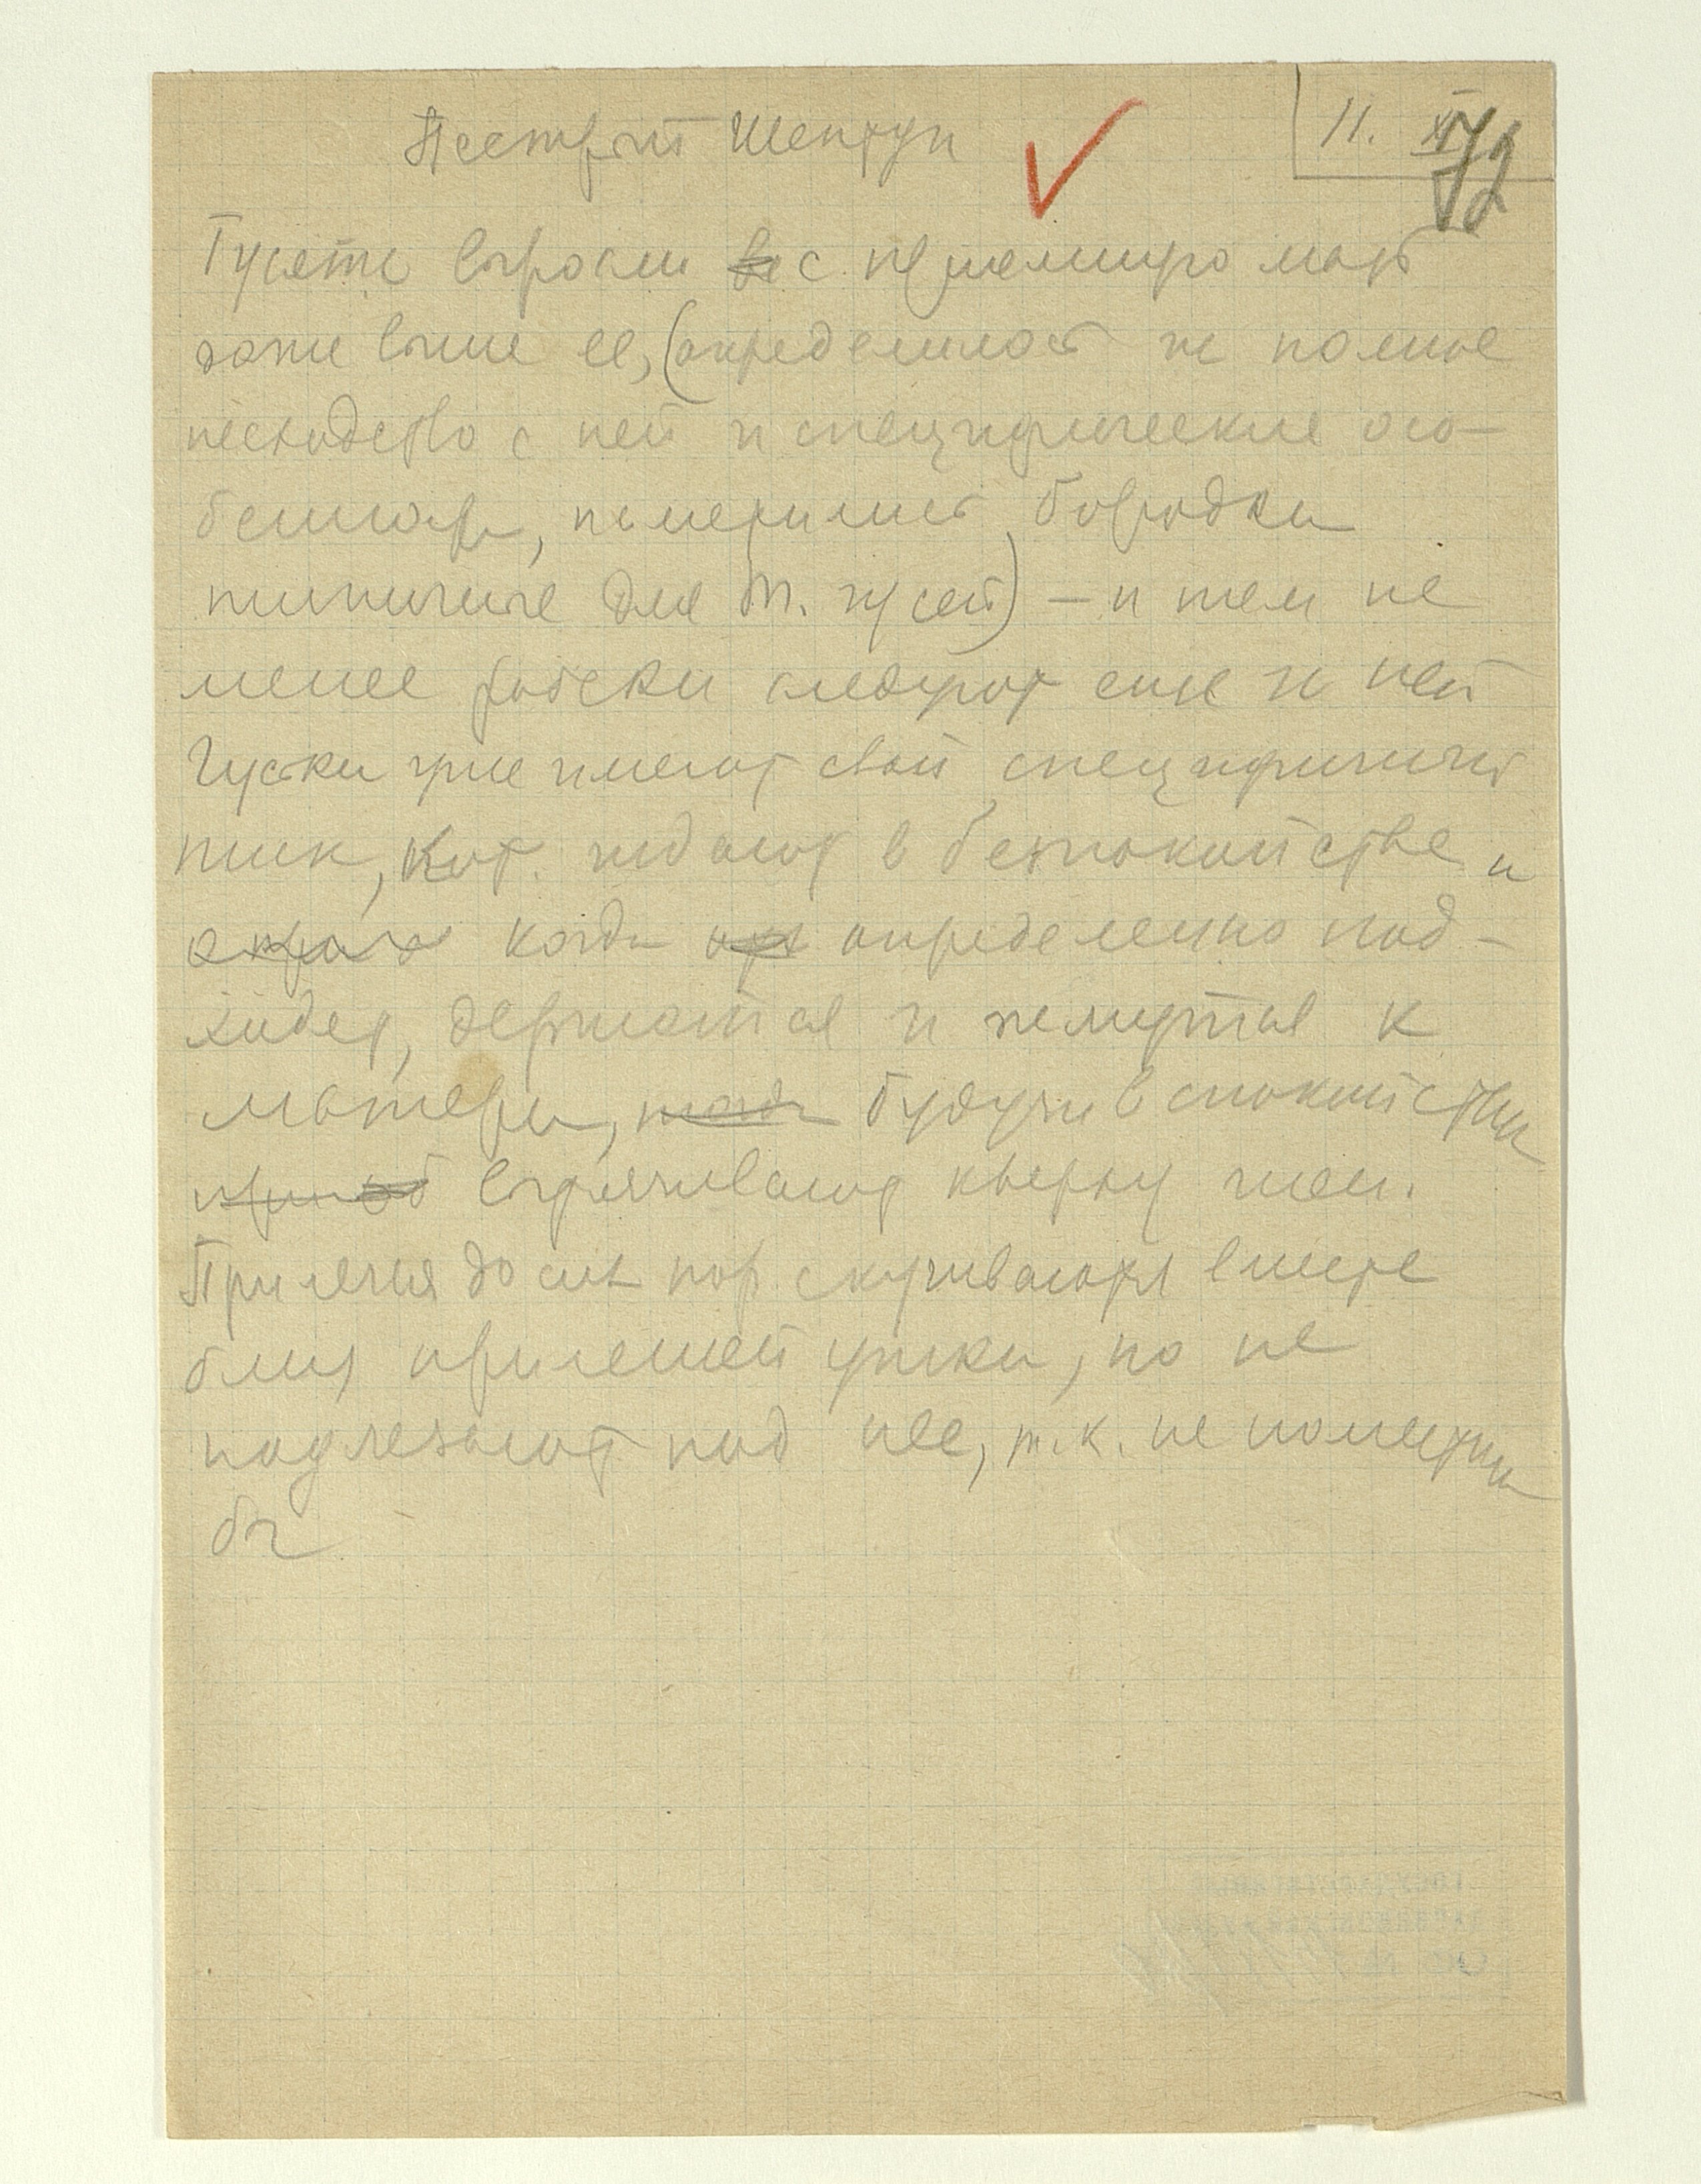 Пестрый Шептун
11. XI
72
Гусята выросли с приемную мать
даже выше ее, (определилось их полное
несходство с ней и специфические осо-
бенности, наметились бородки
типичные для т. гусей) – и тем не
менее робеки следуют еще за ней
Гуськи уже имеют свой специфичный
писк, кот. издают в беспокойстве и
когда определенно под-
ходят, держатся и жмутся к
матери, будучи в спокойствии
вытягивают кверху шеи.
Прилегая до сих пор скучиваются вместе
близ прилегшей утки, но не
подлезают под нее, т.к. не поместили
бы